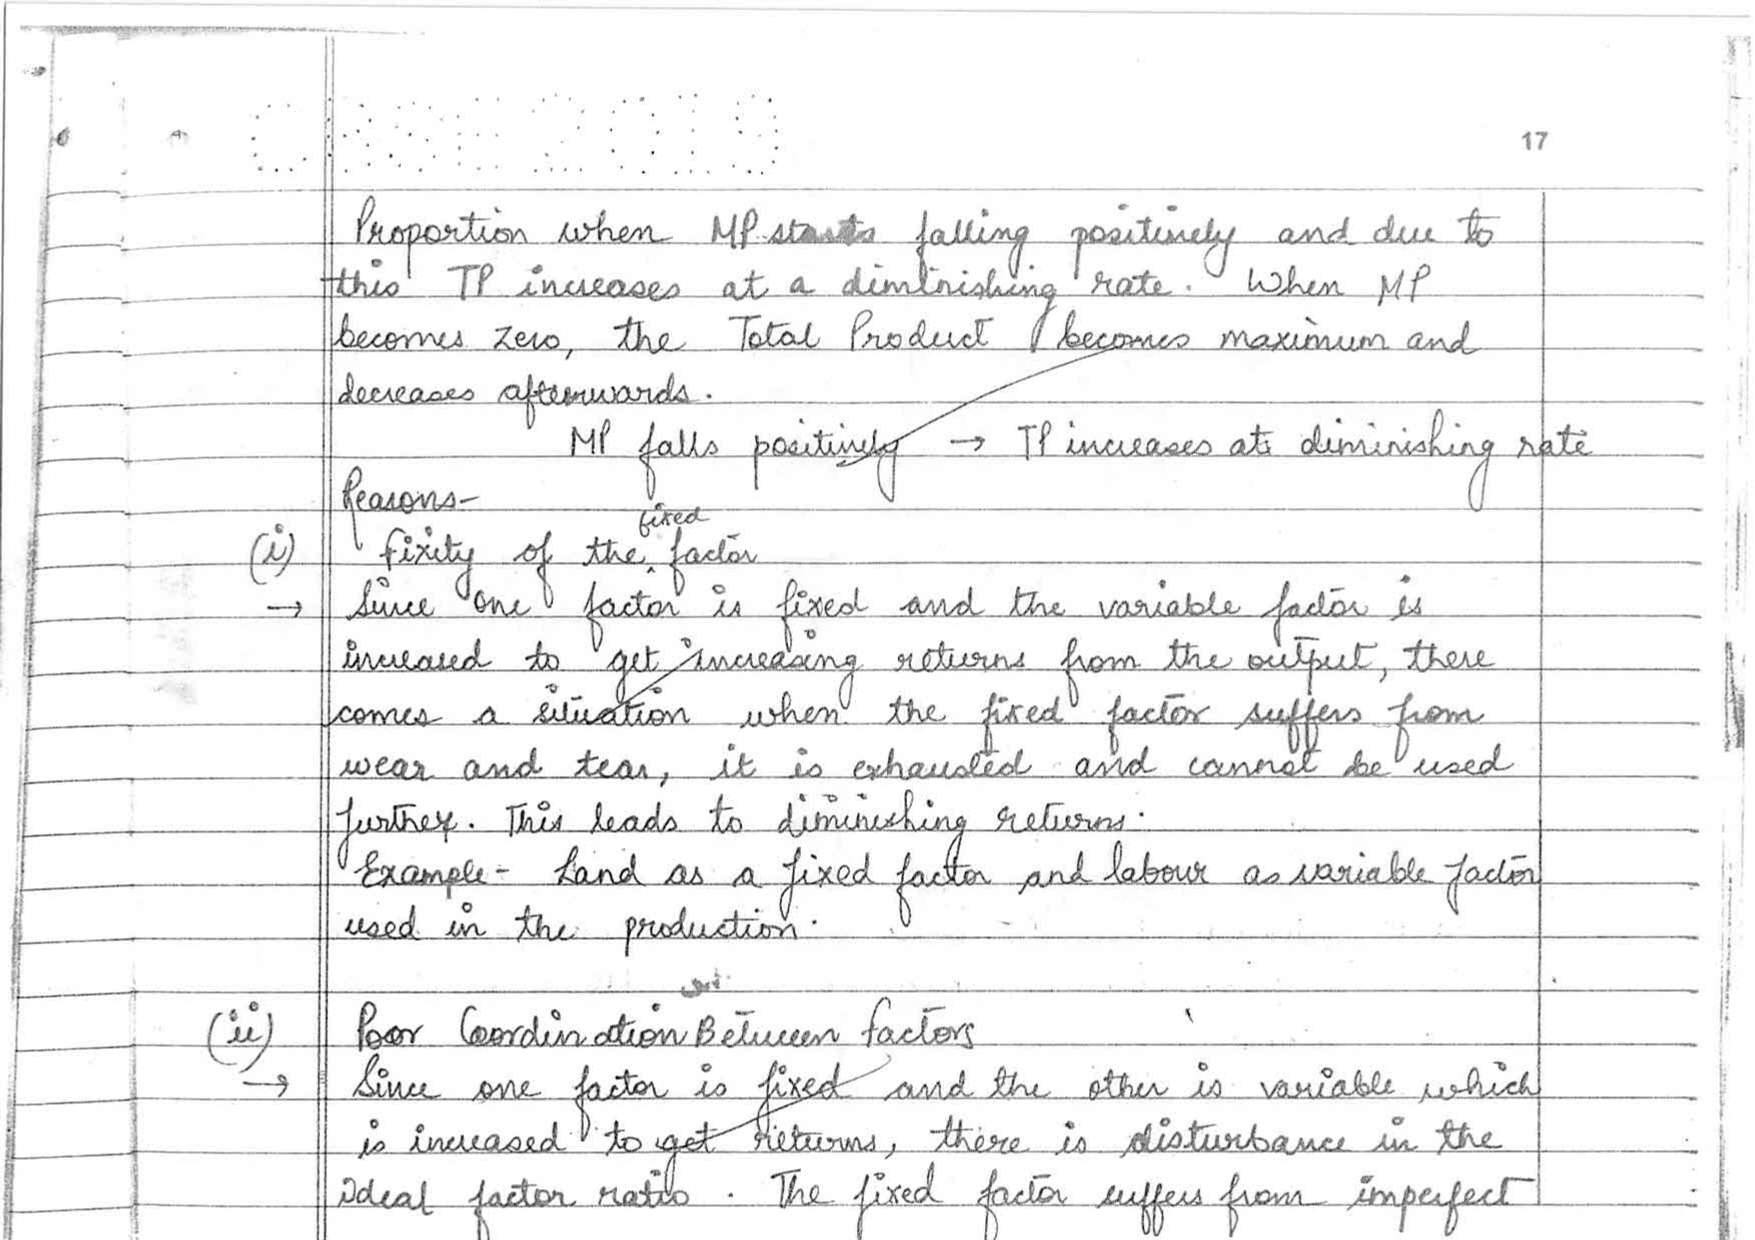 CBSE 2019
17
Proportion when MP starts falling positively and due to
this TP increases at a diminishing rate. When MP
becomes zero, the Total Product becomes maximum and
decreases afterwards.
MP falls positively → TP increases at diminishing rate
Reasons-
fixed
(i) Fixity of the ‸ factor
→ Since one factor is fixed and the variable factor is
increased to get increasing returns from the output, there
comes a situation when the fixed factor suffers from
wear and tear, it is exhausted and cannot be used
further. This leads to diminishing returns.
Example- Land as a fixed factor and labour as variable factor
used in the production.
(ii) Poor Coordination Between factors
→ Since one factor is fixed and the other is variable which
is increased to get returns, there is disturbance in the
Ideal factor ratio. The fixed factor suffers from imperfect